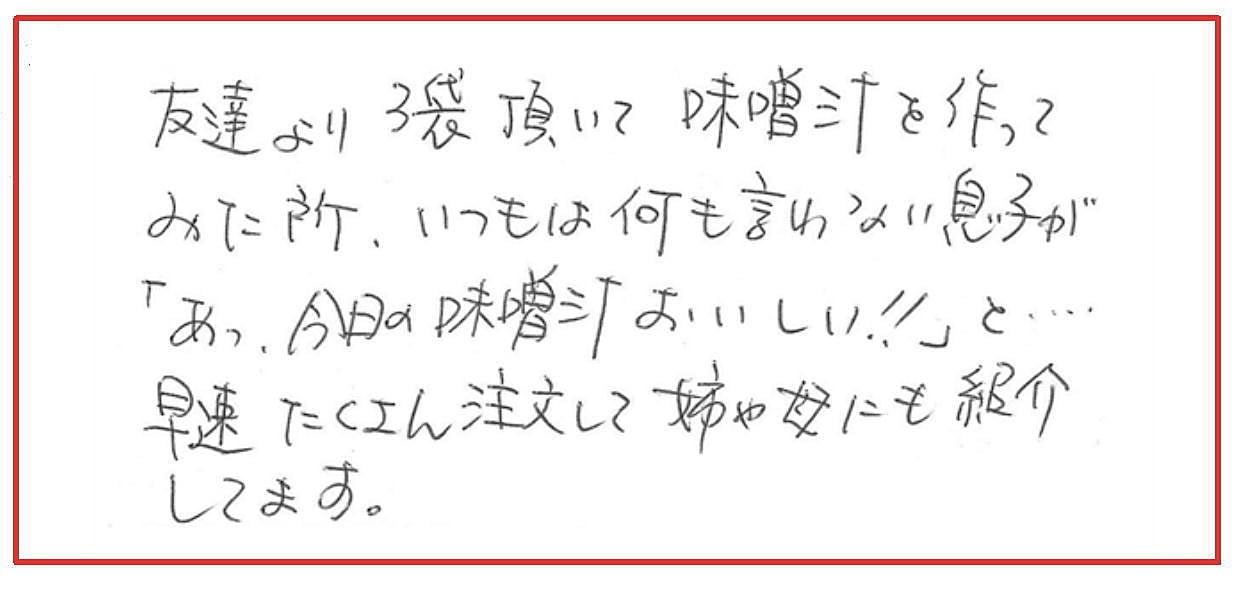 友達より 3袋 頂いて 味噌汁を作って
みた所、いつもは何も言わない息子が
「あっ、今日の味噌汁おいしい!!」と‥‥
早速 たくさん注文して 姉や母にも 紹介
してます。